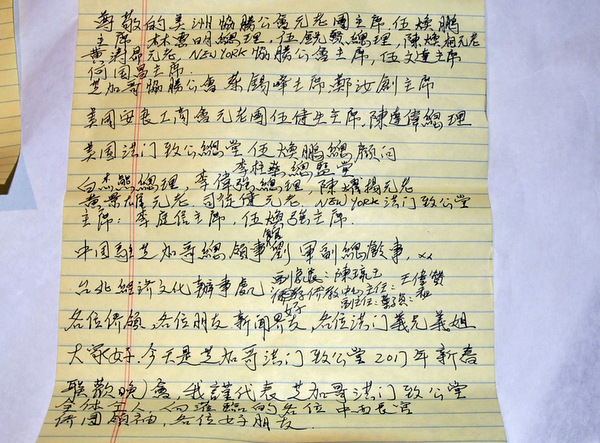 尊敬的美洲協勝公會元老團主席,伍煥鵬
主席 林惠明總理,伍銳賢總理,陳煥 元老
黃 昂元老. NEW YORK 協勝公會主席,伍文達主席
何国昌主席.
芝加哥協勝公會 蔡錫峰主席 鄭汝創主席
美国安良工商會元老團伍健生主席,陳達偉總理
美国洪门致公總堂 伍煥鵬總 顧问
李柱 總監堂
白杰熊總理,李偉強總理, 陳 元老
黄景雄元老. 司徒健元老. NEW YORK 洪门致公堂
主席:李庭信主席,伍煥強主席.
中国駐芝加哥總領事館 劉軍副總領事, xx
台北經済文化辦事處 副處長:陳
僑教中心主任:王偉讚
副主任:
各位侨領 各位朋友 新闻界友好 各位洪门義兄義姐
大家好,今天是芝加哥洪门致公堂2017年新春
联歡晚會,我謹代表芝加哥洪门致公堂
全体 人 向 臨的各位中西長官
侨团領袖,各位好朋友.